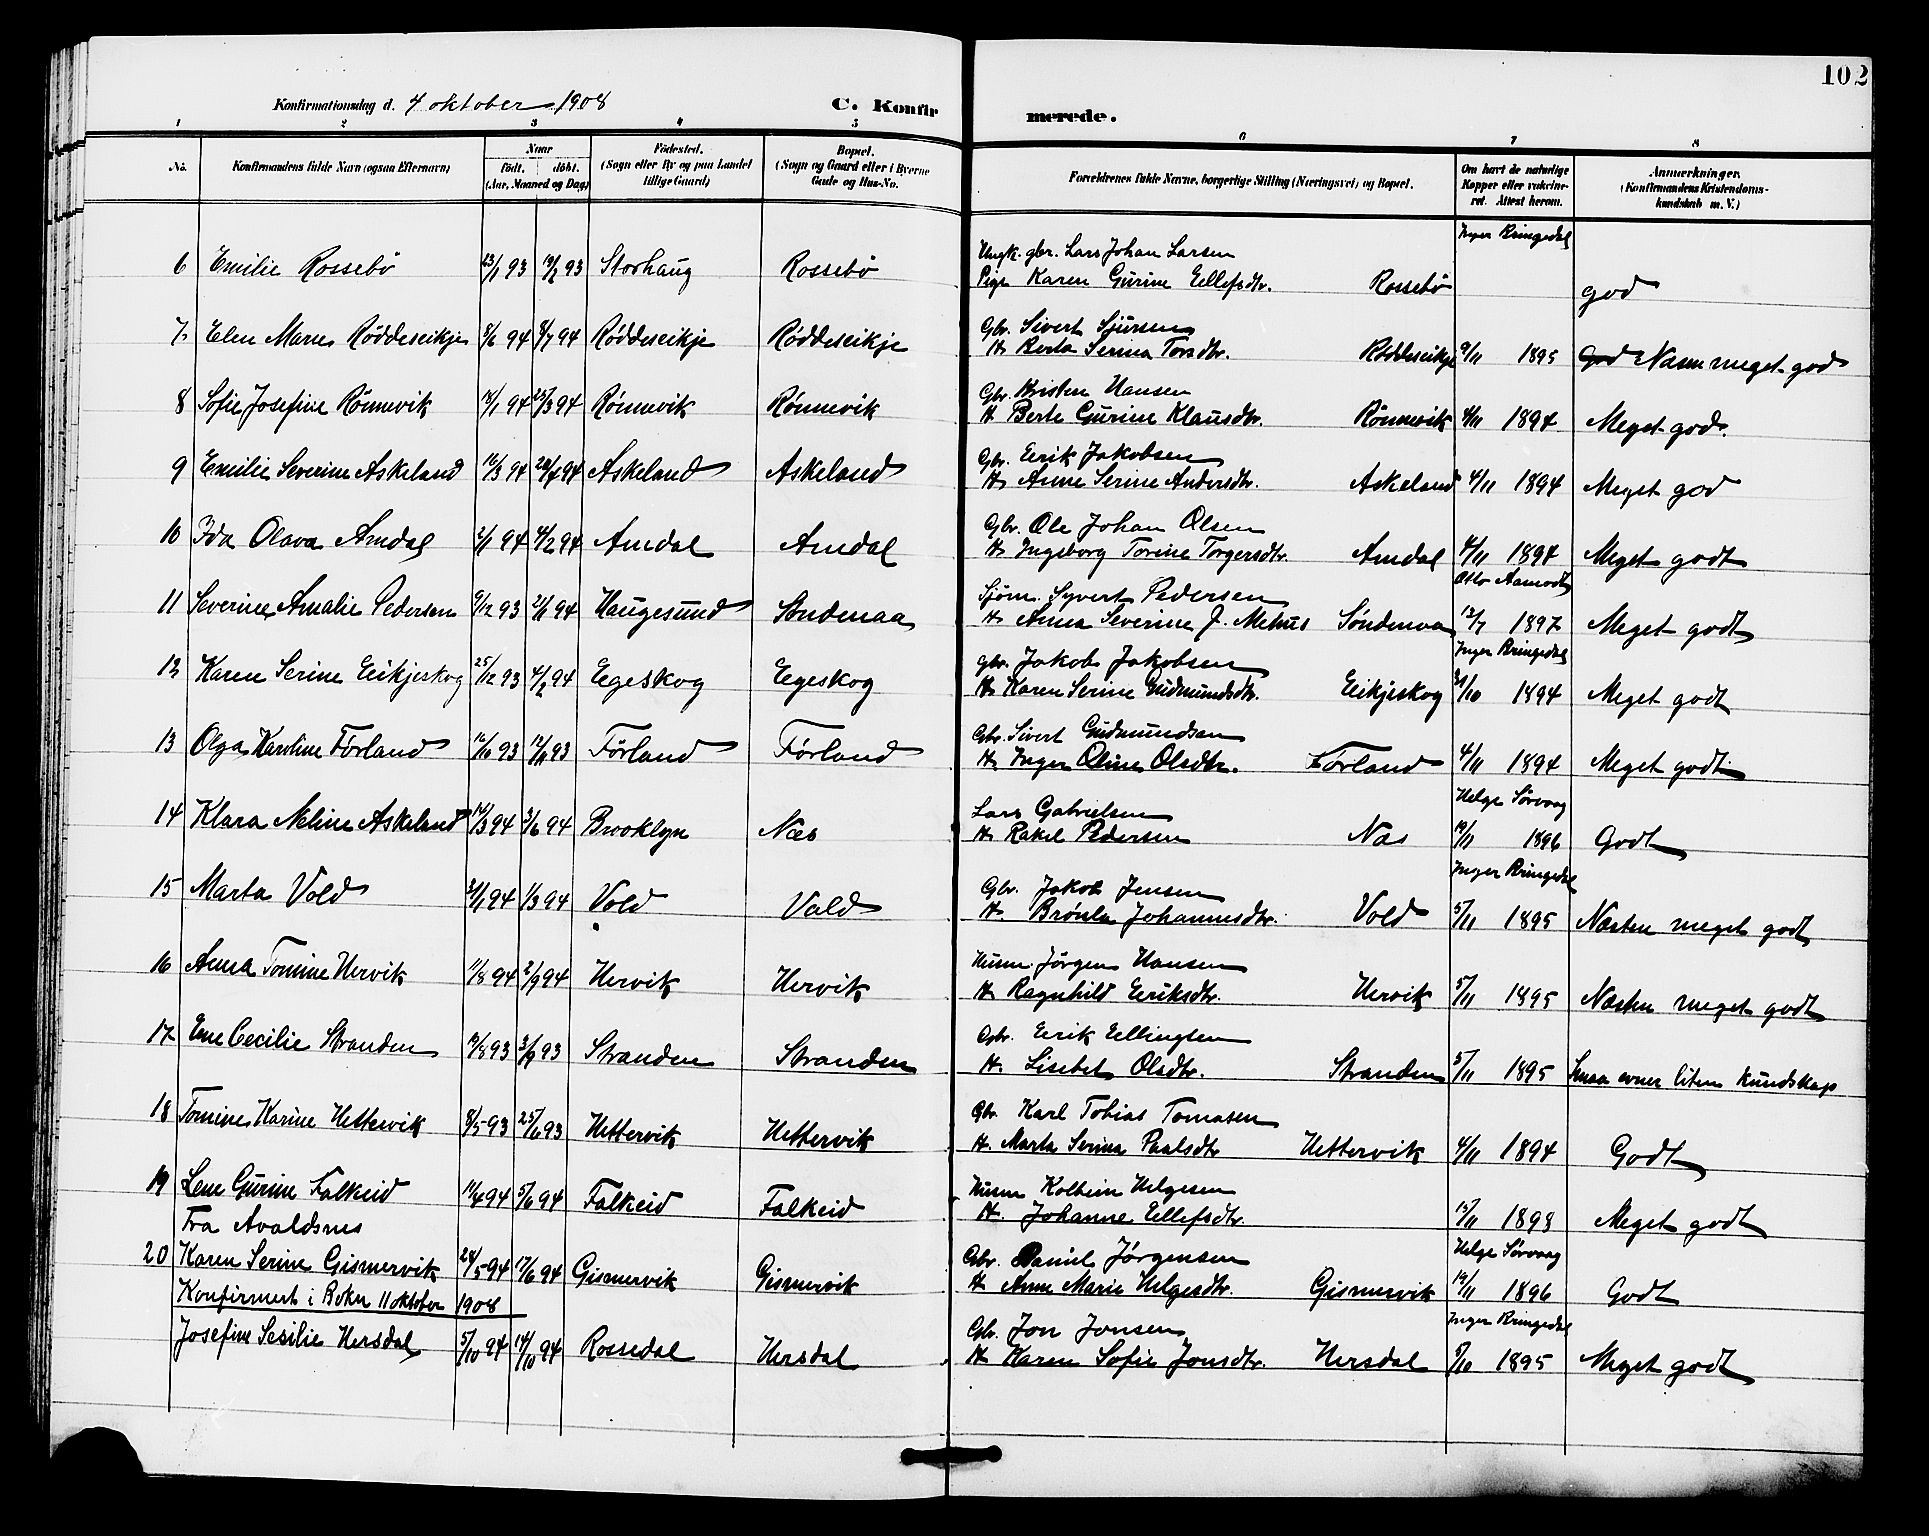 102
Konfirmationsdag d. 4 oktober 1908 C. Konfirmerede.
1 2 3 4 5 6 7 8
No. Konfirmandens fulde Navn (ogsaa Efternavn) Naar født. døbt. (Aar, Maaned og Dag) Fødested. (Sogn eller By og paa Landet tillige Gaard) Bopæl. (Sogn og Gaard eller i Byerne Gade og Hus-No. Forældrenes fulde Navne, borgerlige Stilling (Næringsvei) og Bopæl. Om havt de naturlige Kopper eller vakcineret. Attest herom. Anmærkninger. (Konfirmandens Kristendomskundskab m. V.)
Inger Ringedal
Ungk. gbr. Lars Johan Larsen
6 Emilie Rossebø 23/1 93 19/2 93 Storhaug Rossebø Pige Karen Gurine Ellefsdtr. Rossebø god
Gbr. Sivert Sjursen
7 Elen Marie Røddeseikje 8/6 94 8/7 94 Røddeseikje Røddeseikje H. Berta Serina Torsdtr. Røddeseikje 9/11 1895 God Næsn meget god
Gbr. Kristen Hansen
8 Sofie Josefine Rønnevik 18/1 94 25/3 94 Rønnevik Rønnevik H. Berte Gurine Klausdtr. Rønnevik 4/11 1894 Meget god.
Gbr. Eerik Jakobsen
9 Emilie Severine Askeland 16/3 94 94 Askeland Askeland H. Anne Serine Andersdtr. Askeland 4/11 1894 Meget god
Gbr. Ole Johan Olsen
10 Ida Olava Amdal 2/1 94 4/2 94 Amdal Amdal H. Ingeborg Torine Torgersdtr. Amdal 4/11 1894 Meget godt
Otto Aamodt
Sjøm. Syvert Pedersen
11 Severine Amalie Pedersen 9/12 93 21/1 94 Haugesund Søndenaa H. Anna Severine J. Mehus Søndenaa 12/7 1897 Meget godt
Inger Ringedal
gbr. Jakob Jakobsen
12 Karen Serine Eeikjeskog 25/12 93 4/2 94 Egeskog Egeskog H. Karen Serine Gudmundsdtr. Eeikjeskog 31/10 1894 Meget godt
Gbr. Sivert Gudmundsen
13 Olga Karoline Førland 93 93 Førland Førland H. Inger Oline Olsdtr. Førland 4/11 1894 Meget godt
Helge Sørvaag
Lars Gabrielsen
14 Klara Neline Askeland 14/3 94 3/6 94 Brooklyn Næs H. Rakel Pedersen Næs 19/11 1896 Godt
Inger Ringedal
Gbr. Jakob Jensen
15 Marta Vold 94 1/3 94 Vold Vold H. Brønla Johannesdtr. Vold 5/11 1895 Næsten meget godt
Husm. Jørgen Hansen
16 Anna Tomine Hervik 11/8 94 2/9 94 Hervik Hervik H. Ragnhild Eeriksdtr. Hervik 5/11 1895 Næsten meget godt
Gbr. Eerik Eellingsen
17 Ene Cecilie Stranden 19/8 93 3/9 93 Stranden Stranden H. Lisebet Olsdtr. Stranden 5/11 1895 Smaa evner liten kundskap
Gbr. Karl Tobias Tomasen
18 Tomine Karine Hettervik 8/5 93 25/6 93 Hettervik Hettervik H. Marta Serina Paalsdtr Hettervik 4/11 1894 Godt
Husm Kolbein Helgesen
19 Lene Gurine Falkeid 11/4 94 5/6 94 Falkeid Falkeid H. Johanne Eellefsdtr. 13/11 1898 Meget godt
Fra Avaldsnes
Helge Sørvaag
Gbr. Daniel Jørgensen
20 Karen Serine Gismervik 24/5 94 17/6 94 Gismervik Gismervik H. Anne Marie Helgesdtr. Gismervik 19/11 1896 Godt
Konfirmert i Bokn 11 oktober 1908
Inger Ringedal
Gbr. Jon Jonsen
Josefine Sesilie Hersdal 5/10 94 14/10 94 Rossedal Hersdal H. Karen Sofie Jonsdtr. Hersdal 8/10 1895 Meget godt